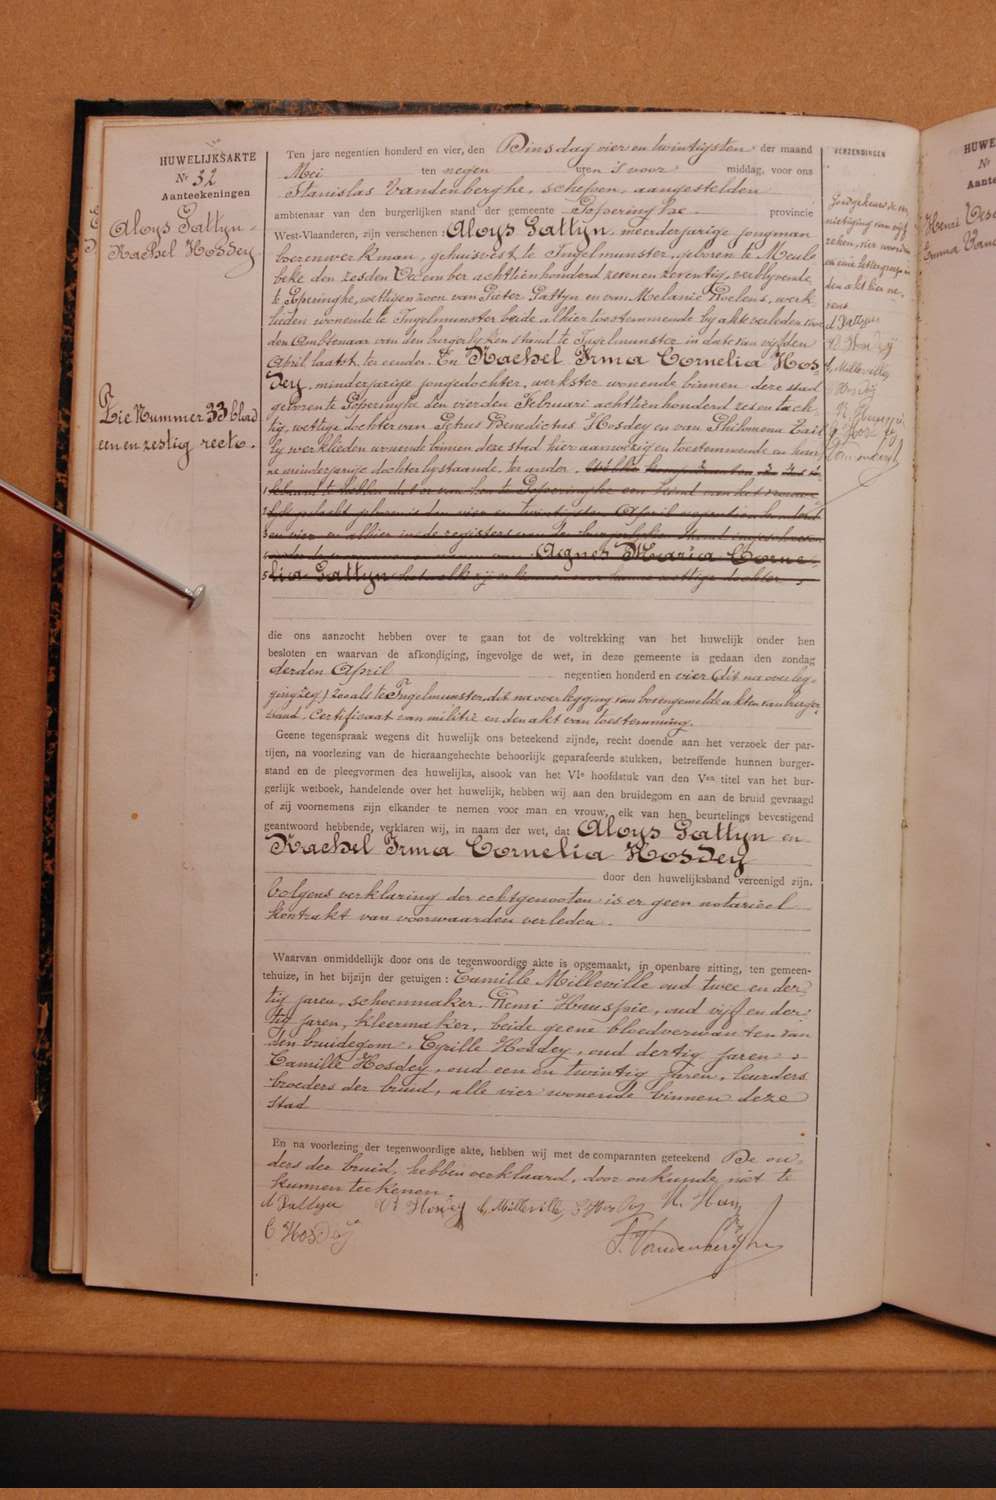 HUWELIJKSAKTE
Nr 32
Aanteekeningen
Aloys Gattyn -
Rachel Hosdey
Zie Nummer 33 blad
een en zestig recto.
Ten jare negentien honderd en vier, den Dinsdag vier en twintigsten der maand
Mei ten negen uren 's voor middag, voor ons
Stanislas Vandenberghe, schepen, aangestelden
ambtenaar van den burgerlijken stand der gemeente Poperinghe provincie
West-Vlaanderen, zijn verschenen: Aloys Gattyn, meerderjarige jongman
boerenwerkman, gehuisvest te Ingelmunster, geboren te Meule
beke den zesden December achttienhonderd zeven en zeventig, verblyvende
te Poperinghe, wettigen zoon van Pieter Gattyn en van Melanie Roelens, werk
lieden wonende te Ingelmunster beide alhier toestemmende by akte verleden voor
den Ambtenaar van den burgerlyken stand te Ingelmunster in date van vijfden
April laatst, ter eender. En Rachel Irma Cornelia Hos-
dey, minderjarige jongedochter, werkster wonende binnen deze stad
geboren te Poperinghe den vierden Februari achttienhonderd zes en tach-
tig, wettige dochter van Petrus Benedictus Hosdey en van Philomena
ly werklieden wonende binnen deze stad hier aanwezig en toestemmende en hun-
ne minderjarige dochter bystaande, ter ander.
1 erkend te hebben dat er van hen te Poperinghe een kind van het vrouwe
2 lijk geslacht geboren is den vier en twintigsten April negentien honderd
3 en vier en alhier in de registers van den burgerlijken stand ingeschreven
4 Agnes Maria Corne
5 lia Gattyn, hunne wettige dochter
die ons aanzocht hebben over te gaan tot de voltrekking van het huwelijk onder hen
besloten en waarvan de afkondiging, ingevolge de wet, in deze gemeente is gedaan den zondag
derden April negentien honderd en vier (dit na overleg-
ging zeg) zooals te Ingelmunster, dit na overlegging van bovengemelde akten van burger-
stand. Certificaat van militie en den akt van toestemming.
Geene tegenspraak wegens dit huwelijk ons beteekend zijnde, recht doende aan het verzoek der par-
tijen, na voorlezing van de hieraangehechte behoorlijk geparafeerde stukken, betreffende hunnen burger-
stand en de pleegvormen des huwelijks, alsook van het VIe hoofdstuk van den Ven titel van het bur-
gerlijk wetboek, handelende over het huwelijk, hebben wij aan den bruidegom en aan de bruid gevraagd
of zij voornemens zijn elkander te nemen voor man en vrouw, elk van hen beurtelings bevestigend
geantwoord hebbende, verklaren wij, in naam der wet, dat Aloys Gattyn en
Rachel Irma Cornelia Hosdey
door den huwelijksband vereenigd zijn.
Volgens verklaring der echtgenooten is er geen notarieel
kontrakt van voorwaarden verleden.
Waarvan onmiddellijk door ons de tegenwoordige akte is opgemaakt, in openbare zitting, ten gemeen-
tehuize, in het bijzijn der getuigen: Camille Milleville oud twee en der
tig jaren, schoenmaker. Remi Huuspie, oud vijf en der-
tig jaren, kleermaker, beide geene bloedverwanten van
den bruidegom. Cyrille Hosdey, oud dertig jaren &
Camille Hosdey, oud een en twintig jaren, leurders
broeders der bruid, alle vier wonende binnen deze
stad
En na voorlezing der tegenwoordige akte, hebben wij met de comparanten geteekend De ou-
ders der bruid, hebben verklaard, door onkunde, niet te
kunnen teekenen
A Gattyn R Hosdey C, Milleville, C Hosdey R. Huus
C Hosdey S. Vandenberghe
VERZENDINGEN
Goedgekeurd de ver
nietiging van vijf
reken, vier woorden
en eene lettergreep in
den akt hier ne-
vens
A Gattyn
R Hosdey
C, Milleville
Hosdey
HUWE
Aante
Henri Dese